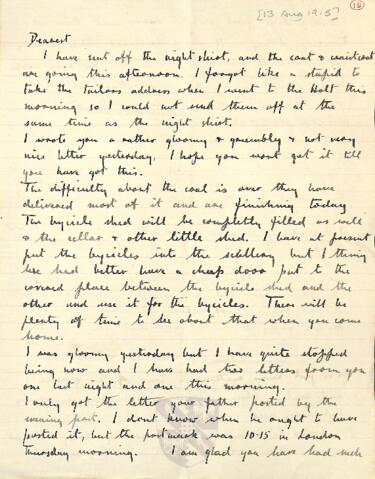 (18)
[13 Aug 1915]
Dearest
I have sent off the night shirt, and the coat & waistcoat
are going this afternoon. I forgot like a stupid to
take the tailors address when I went to the Holt this
morning so I could not send them off at the
same time as the night shirt.
I wrote you a rather gloomy & grumbly & not very
nice letter yesterday, I hope you wont get it till
you have got this.
The difficulty about the coal is over they have
delivered most of it and are finishing today
The bycicle shed will be completly filled as well
as the cellar & other little shed. I have at present
put the bycicles into the scullery but I think
we had better have a cheap door put to the
covered place between the bycicle shed and the
other and use it for the bycicles. There will be
plenty of time to see about that when you come
home.
I was gloomy yesterday but I have quite stopped
being now and I have had two letters from you
one last night and one this morning.
I only got the letter your father posted by the
evening post. I dont know when he ought to have
posted it, but the postmark was 10.15 in London
Thursday morning. I am glad you have had such